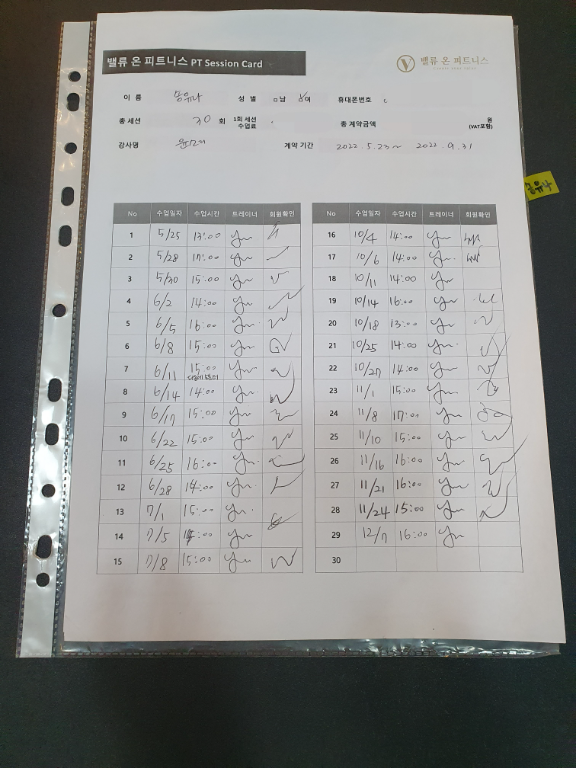 밸류 온 피트니스 PT Session Card
밸류 온 피트니스
이 름 성 별 □남 여 휴대폰번호
총 세션 30 회 1회 세션 수업료 총 계약금액 원 (VAT포함)
강사명 계약 기간 2022. 5. 23 ~ 2022. 9. 31
No 수업일자 수업시간 트레이너 회원확인
1 5/25 13:00
2 5/28 17:00
3 5/30 15:00
4 6/2 14:00
5 6/5 16:00
6 6/8 15:00
7 6/11 15:00
8 6/14 14:00
9 6/17 15:00
10 6/22 15:00
11 6/25 16:00
12 6/28 14:00
13 7/1 15:00
14 7/5
15 7/8 15:00
No 수업일자 수업시간 트레이너 회원확인
16 10/4 14:00
17 10/6 14:00
18 10/11 14:00
19 10/14 16:00
20 10/18 13:00
21 10/25 14:00
22 10/27 14:00
23 11/1 15:00
24 11/8 17:00
25 11/10 15:00
26 11/16 16:00
27 11/21 16:00
28 11/24 15:00
29 12/7 16:00
30